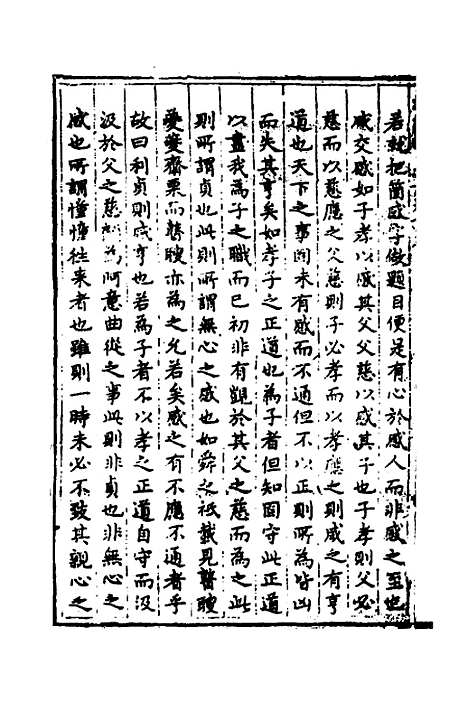 若就把箇感字做題目便是有心於感人而非感之至也
感交感如子孝以感其父父慈以感其子也子孝則父必
慈而以慈應之父慈則子必孝而以孝應之則感之有亨
道也天下之事固未有感而不通但不以正則所為皆凶
而失其亨矣如孝子之正道也為子者但知固守此正道
以盡我為子之職而已初非有觀於其父之慈而為之此
則所謂貞也此則所謂無心之感也如舜之祗載見瞽瞍
夔夔齊栗而瞽瞍亦為之允若矣感之有不應不通者乎
故曰利貞則咸亨也若為子者不以孝之正道自守而汲
汲於父之慈為阿意曲從之事此則非貞也非無心之
感也所謂憧憧往来者也雖則一時未必不致其親心之